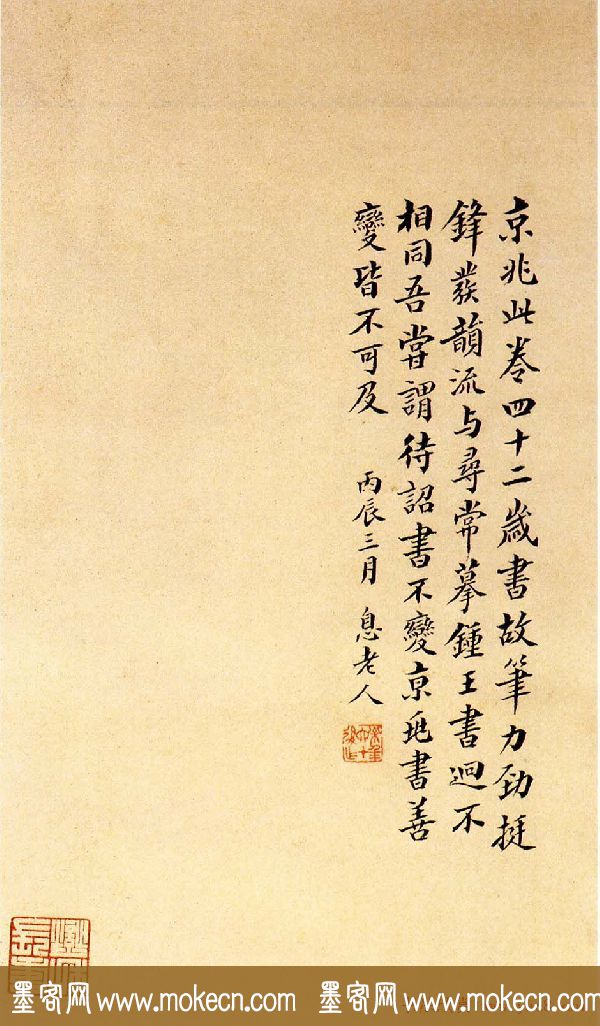 京兆此卷四十二歲書故筆力勁挺
鋒發韻流与尋常摹鍾王書迥不
相同吾嘗謂待詔書不變京兆書善
變皆不可及
丙辰三月 息老人
墨客网 www.mokecn.com 墨客网 www.mokecn.com